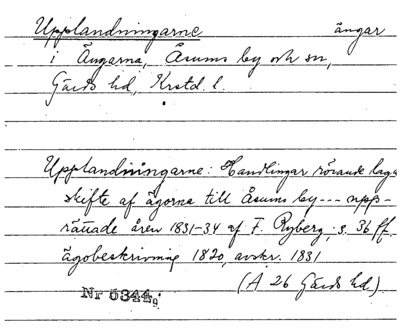 Upplandningarne ängar
i Ängarna, Åsums by och sn,
Gärds hd, Krstd. l.
Upplandningarne: Handlingar rörande laga
skifte af ägorna till Åsums by --- upp-
rättade åren 1831-34 af F. Ryberg, s. 36 ff.
ägobeskrivning 1820, avskr. 1831
(A 26 Gärds hd.)
Nr 5344